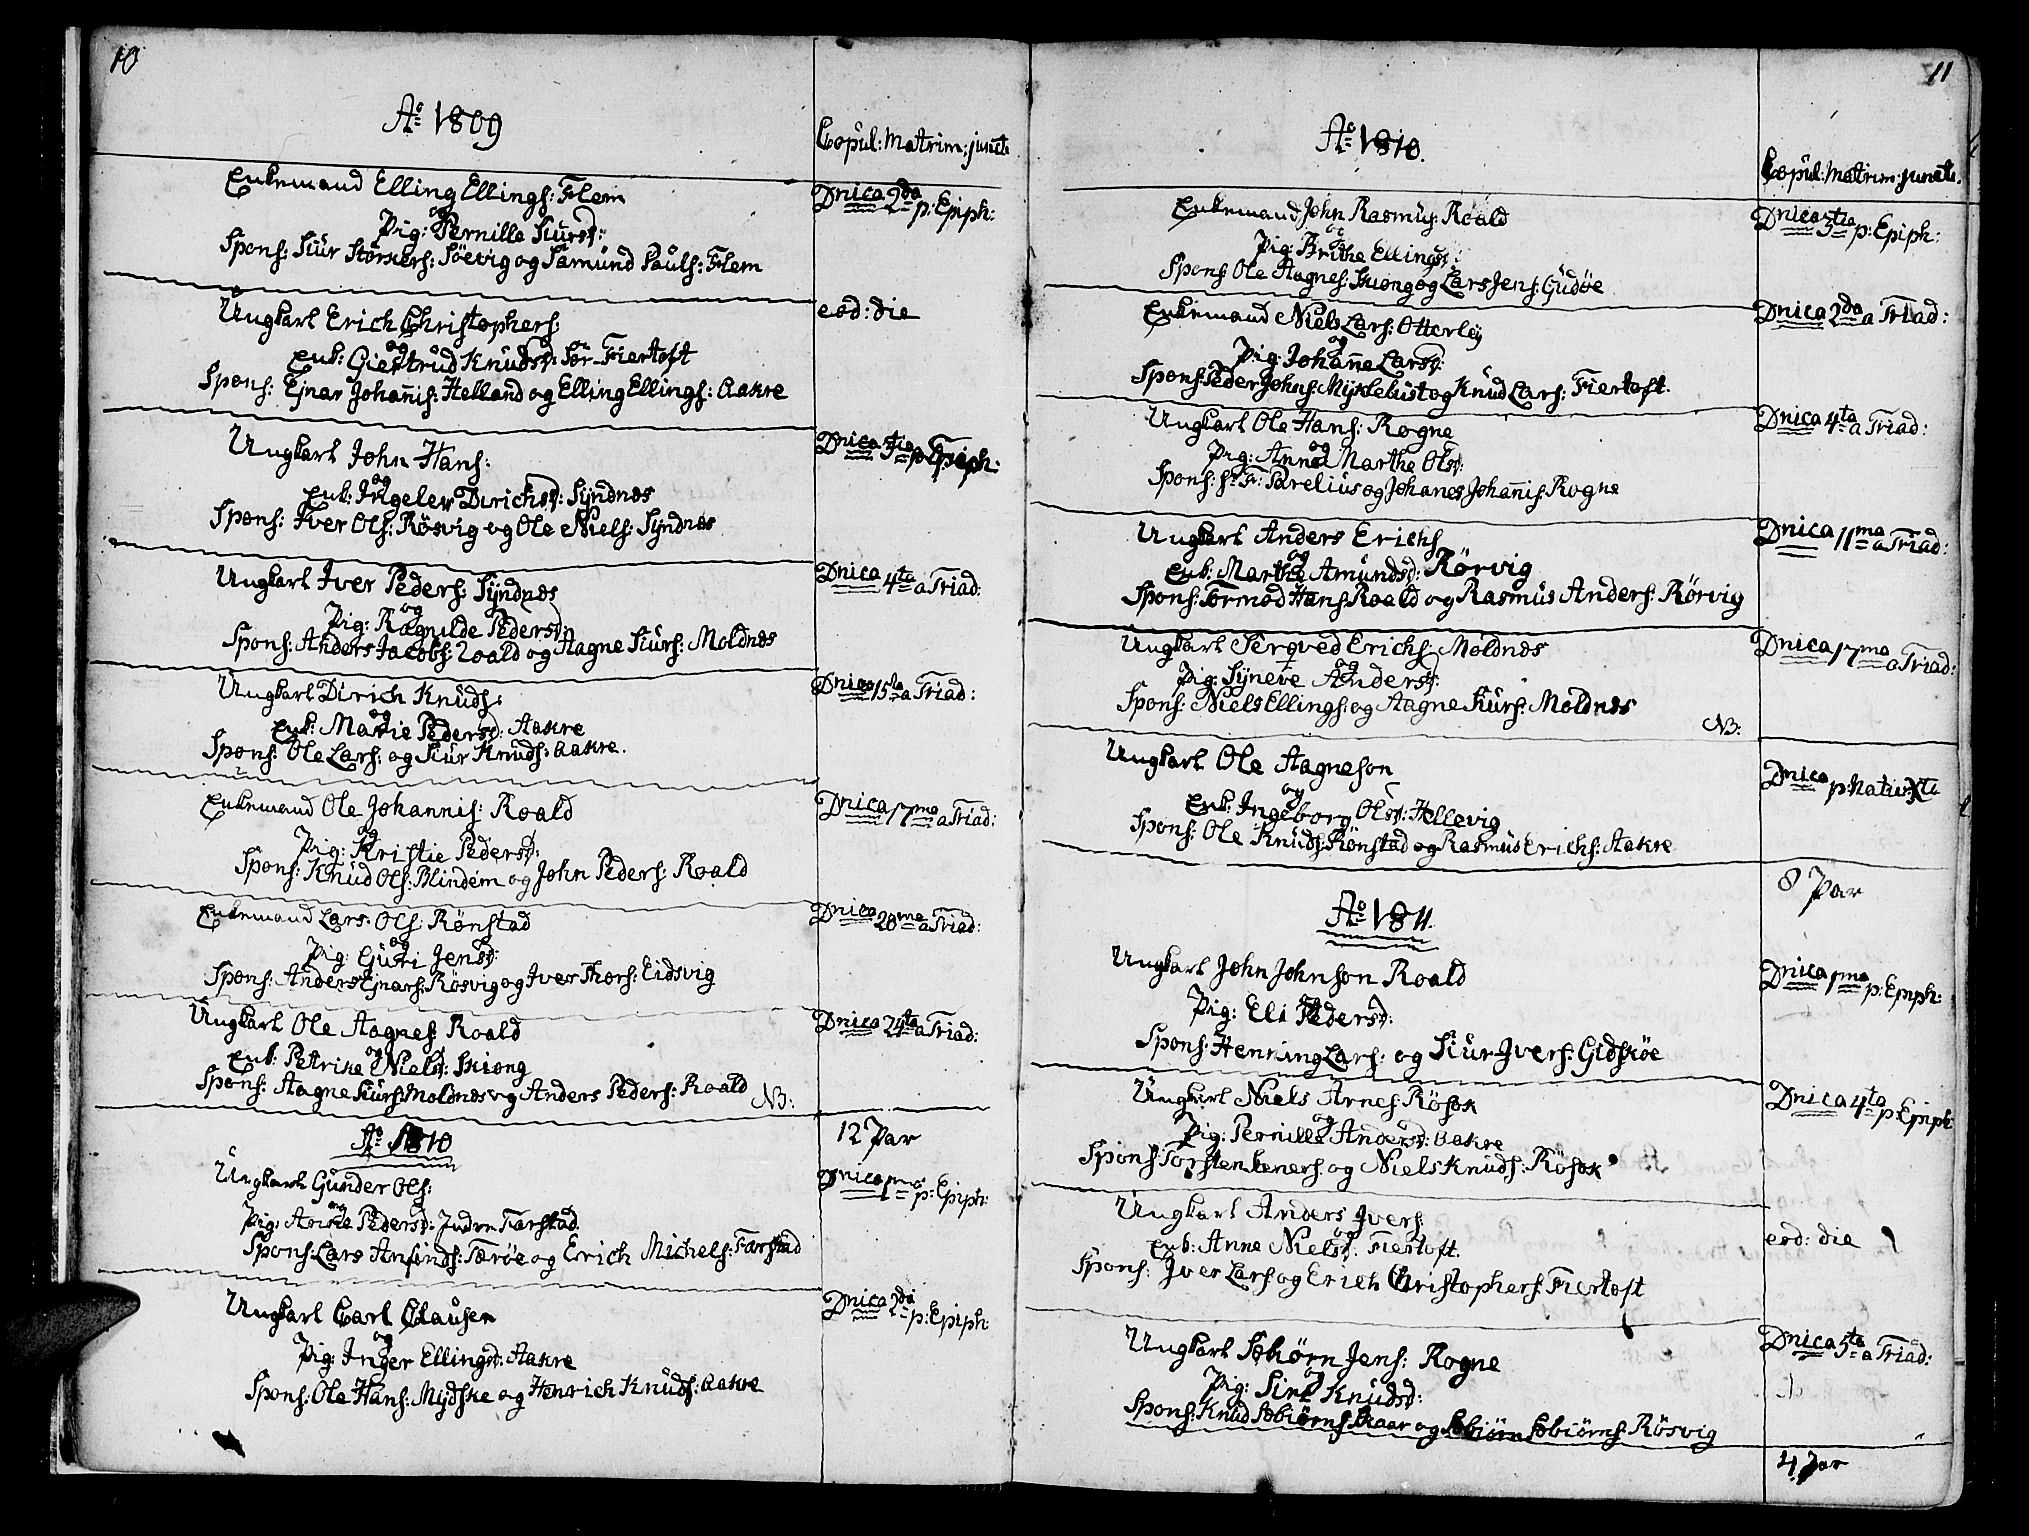 10
Aº 1809
Copul: Matrim: junct:
Enkemand Elling Ellings: Flem
og
Pig: Pernille Siursd:
Spons: Siur Størkers: Söevig og Samund Pauls: Flem
Dnica 2da p: Epiph:
Ungkarl Erich Christophers:
og
Enk: Giertrud Knudsd: Sør-Fiertoft
Spons: Ejnar Johannis: Helland og Elling Ellings: Aakre
eod: die
Ungkarl John Hans:
og
Enk: Ingeler Dirichsd: Syndnes
Spons: Iver Ols: Rösvig og Ole Niels: Syndnes
Dnica 3tia p: Epiph:
Ungkarl Iver Peders: Syndnes
og
Pig: Ragnilde Pedersd:
Spons: Anders Jacobs: Roald og Aagne Siurs: Moldnes
Dnica 4ta a Triad:
Ungkarl Dirich Knuds:
og
Enk: Marie Pedersd: Aakre
Spons: Ole Lars: og Siur Knuds: Aakre.
Dnica 15ta a Triad:
Enkemand Ole Johannis: Roald
og
Pig: Kristie Pedersd:
Spons: Knud Ols: Blindem og John Peders: Roald
Dnica 17ma a Triad:
Enkemand Lars Ols: Rönstad
og
Pig: Guri Jensd:
Spons: Anders Ejnars: Rösvig og Iver Thors: Eidsvig
Dnica 20ma a Triad:
Ungkarl Ole Aagnes: Roald
og
Enk: Petrike Nielsd: Skiong
Spons: Aagne Siurs: Moldnes og Anders Peders: Roald
NB:
Dnica 24ta a Triad:
12 Par
Aº 1810
Ungkarl Gunder Ols:
og
Pig: Anne Pedersd: Indre Farstad
Spons: Lars Anfinds: Tærøe og Erich Michels: Farstad
Dnica 1ma p: Epiph:
Ungkarl Carl Clausen
og
Pig: Inger Ellingsd: Aakre
Spons: Ole Hans: Mydske og Henrich Knuds: Aakre
Dnica 2da p: Epiph:
11
Aº 1810.
Copul: Matrim: junct:
Enkemand John Rasmus: Roald
og
Pig: Brithe Ellingsd:
Spons: Ole Aagnes: Skiong og Lars Jens: Gudøe
Dnica 3tia p: Epiph:
Enkemand Niels Lars: Otterley
og
Pig: Johanne Larsd:
Spons: Peder Johns: Myklebust og Knud Lars: Fiertoft.
Dnica 2da a Triad:
Ungkarl Ole Hans: Rogne
og
Pig: Anne Marthe Olsd:
Spons: Sr F: Parelius og Johanes Johannis: Rogne
Dnica 4ta a Triad:
Ungkarl Anders Erichs
og
Enk: Marthe Amundsd: Rörvig
Spons: Tormod Hans: Roald og Rasmus Anders: Rörvig
Dnica 11ma a Triad:
Ungkarl Serqved Erichs: Moldnes
og
Pig: Syneve Andersd:
Spons: Niels Ellings: og Aagne Siurs: Moldnes
NB:
Dnica 17ma a Triad:
Ungkarl Ole Aagneson
og
Enk: Ingeborg Olsd: Hellevig
Spons: Ole Knuds: Rönstad og Rasmus Erichs: Aakre
Dnica p: Nativ: Xti
8 Par
Aº 1811.
Ungkarl John Johnson Roald
og
Pig: Eli Pedersd:
Spons: Henning Lars: og Siur Ivers: Gidskøe
Dnica 1ma p: Epiph:
Ungkarl Niels Arnes: Rösok
og
Pig: Pernille Andersd: Aakre
Spons: Torsten Eeners og Niels Knuds: Rösok
Dnica 4ta p: Epiph
Ungkarl Anders Ivers:
og
Enk: Anne Nielsd: Fiertoft.
Spons: Iver Lars: og Erich Christophers: Fiertoft
eod: die
Ungkarl Sobiørn Jens: Rogne
og
Pig: Siri Knudsd:
Spons: Knud Sobiørns: Skaar og Sobiørn Sobiørns: Rösvig
Dnica 5ta a Triad:
4 Par